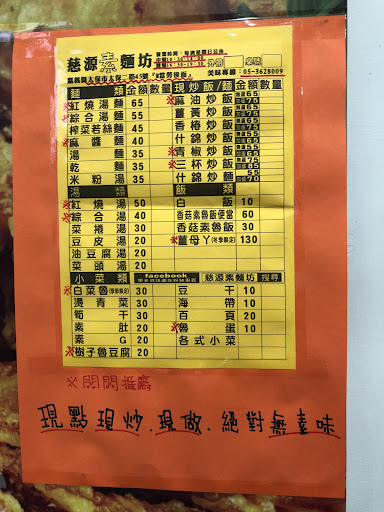 慈源素麵坊
營業時間：每週星期日公休
外帶 桌號
美味專線：05-3628009
麵類 金額 數量 現炒飯/麵 金額 數量
※紅燒湯麵 65 ※麻油炒飯 65 75
※綜合湯麵 55 薑黃炒飯
榨菜若絲麵 45 香椿炒飯
※麻醬麵 40 什錦炒飯
湯麵 35 ※青椒炒飯
乾麵 35 ※三杯炒飯
米粉湯 35 什錦炒麵 55 70
湯類 飯類
※紅燒湯 50 白飯 10
※綜合湯 40 香菇素魯飯便當 60
菜捲湯 30 香菇素魯飯 30
豆皮湯 20 ※薑母丫(冬季限定) 130
油豆腐湯 20
菜頭湯 20
小菜類 facebook 慈源素麵坊 搜尋
※白菜魯(季節限定) 30 豆干 10
燙青菜 30 海帶 10
筍干 30 百頁 20
素肚 20 ※魯蛋 10
素G 20 各式小菜
※樹子魯豆腐 20
※闆闆推薦
現點現炒.現做.絕對無素味